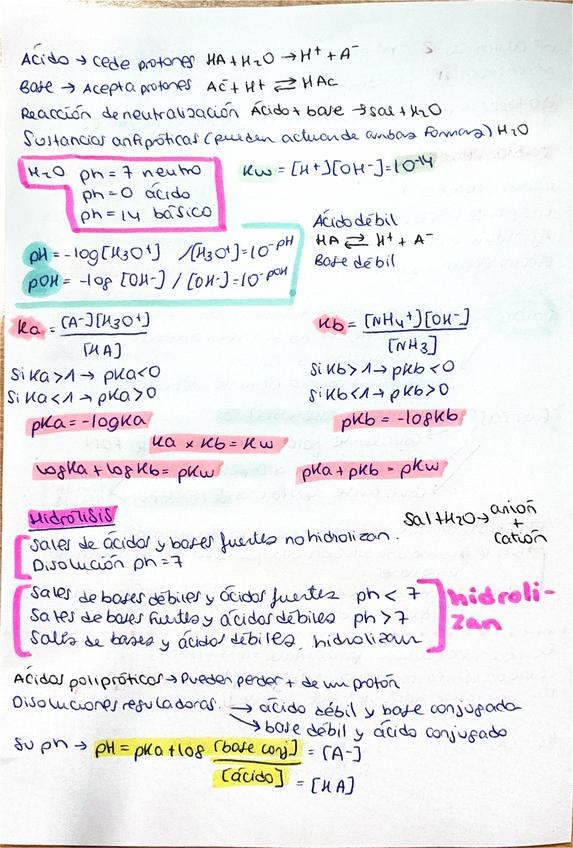 Ácido → cede protones HA + H2O → H+ + A-
Base → Acepta protones Ac- + H+ ⇄ HAc
Reacción de neutralización Ácido + base → sal + H2O
Sustancias anfipróticas (pueden actuar de ambas formas) H2O
H2O ph = 7 neutro
ph = 0 ácido
ph = 14 básico
Kw = [H+][OH-] = 10^-14
pH = -log[H3O+] / [H3O+] = 10^-pH
pOH = -log [OH-] / [OH-] = 10^-pOH
Ácido débil
HA ⇄ H+ + A-
Base débil
Ka = [A-][H3O+] / [HA]
Si Ka > 1 → pKa < 0
Si Ka < 1 → pKa > 0
pKa = -logKa
Kb = [NH4+][OH-] / [NH3]
Si Kb > 1 → pKb < 0
Si Kb < 1 → pKb > 0
pKb = -logKb
Ka x Kb = Kw
logKa + logKb = pKw
pKa + pKb = pKw
Hidrólisis
Sal + H2O → anión + catión
Sales de ácidos y bases fuertes no hidrolizan.
Disolución ph = 7
Sales de bases débiles y ácidos fuertes ph < 7
Sales de bases fuertes y ácidos débiles ph > 7
Sales de bases y ácidos débiles. hidrolizan
hidroli-
zan
Ácidos polipróticos → Pueden perder + de un protón
Disoluciones reguladoras. → ácido débil y base conjugada
→ base débil y ácido conjugado
Su ph → pH = pKa + log [base conj] / [ácido] = [A-] / = [HA]